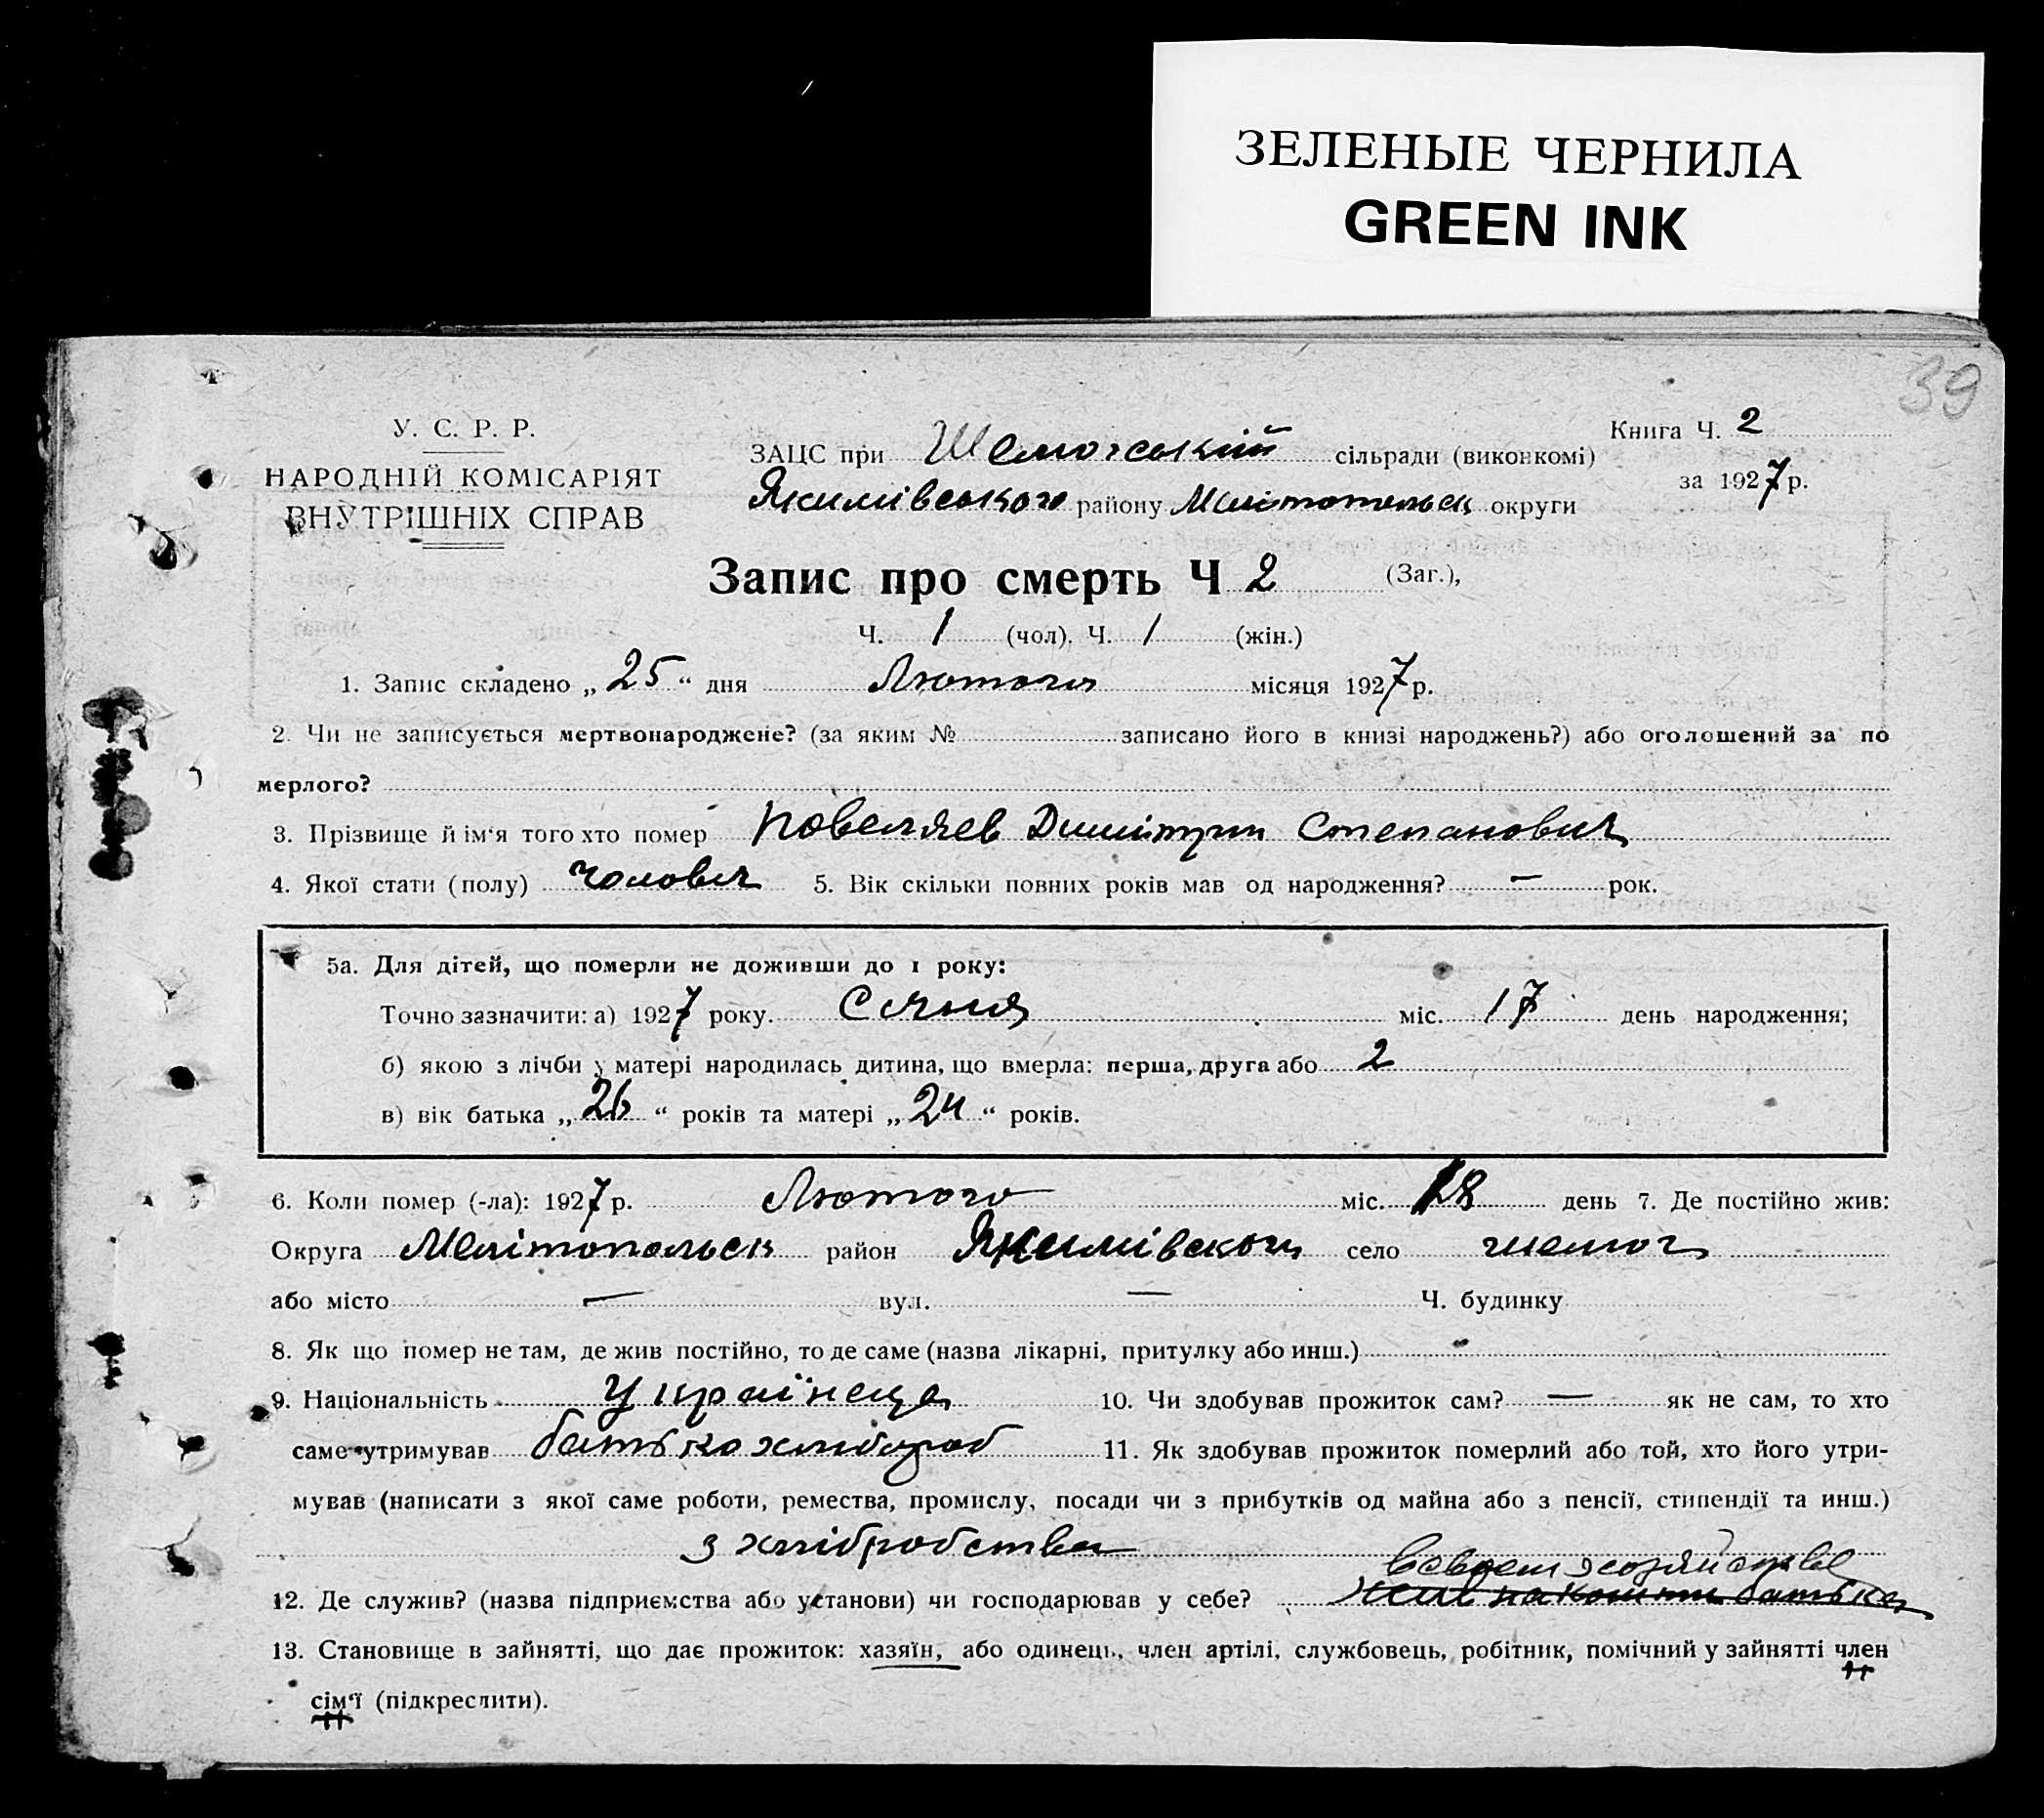 ЗЕЛЕНЫЕ ЧЕРНИЛА
GREEN INK
39
У. С. Р. Р.
НАРОДНІЙ КОМІСАРІЯТ
ВНУТРІШНІХ СПРАВ
Книга Ч. 2
за 1927 р.
ЗАЦС при сільради (виконкомі)
Якимівського району Мелітопольск округи
Запис про смерть Ч 2 (Заг.),
Ч. 1 (чол). Ч. 1 (жін.)
1. Запис складено „ 25 “ дня Лютого місяця 1927 р.
2. Чи не записується мертвонароджене? (за яким № записано його в книзі народжень?) або оголошений за по
мерлого?
3. Прізвище й ім‘я того хто помер Димітрий Степанович
4. Якої стати (полу) чоловіч 5. Вік скільки повних років мав од народження? — рок.
5а. Для дітей, що померли не доживши до 1 року:
Точно зазначити: а) 1927 року. Січня міс. 17 день народження;
б) якою з лічби у матері народилась дитина, що вмерла: перша, друга або 2
в) вік батька „ 26 “ років та матері „ 24 “ років.
6. Коли помер (-ла): 1927 р. Лютого міс. день 7. Де постійно жив:
Округа Мелітопольск район Якимівского село
або місто — вул. — Ч. будинку
8. Як що помер не там, де жив постійно, то де саме (назва лікарні, притулку або инш.)
9. Національність Українець 10. Чи здобував прожиток сам? — як не сам, то хто
саме утримував батько хлибороб 11. Як здобував прожиток померлий або той, хто його утри-
мував (написати з якої саме роботи, ремества, промислу, посади чи з прибутків од майна або з пенсії, стипендії та инш.)
з хлібробства
в своем хозяйстве
12. Де служив? (назва підприємства або установи) чи господарював у себе? жив на кошти батька
13. Становище в зайнятті, що дає прожиток: хазяїн, або одинець, член артілі, службовець, робітник, помічний у зайнятті член
сім‘ї (підкреслити).